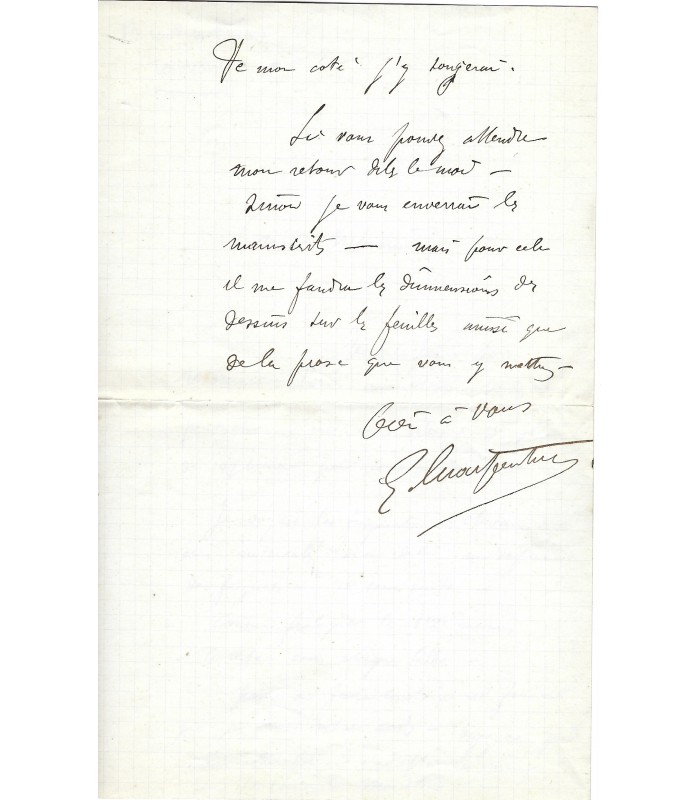 De mon coté j'y songerai.
Si vous pouvez attendre
mon retour dites le moi —
sinon je vous enverrai les
manuscrits — mais pour cela
il me faudra les dimensions des
dessins sur les feuilles ainsi que
de la prose que vous y mettez —
à vous
G. Charpentier